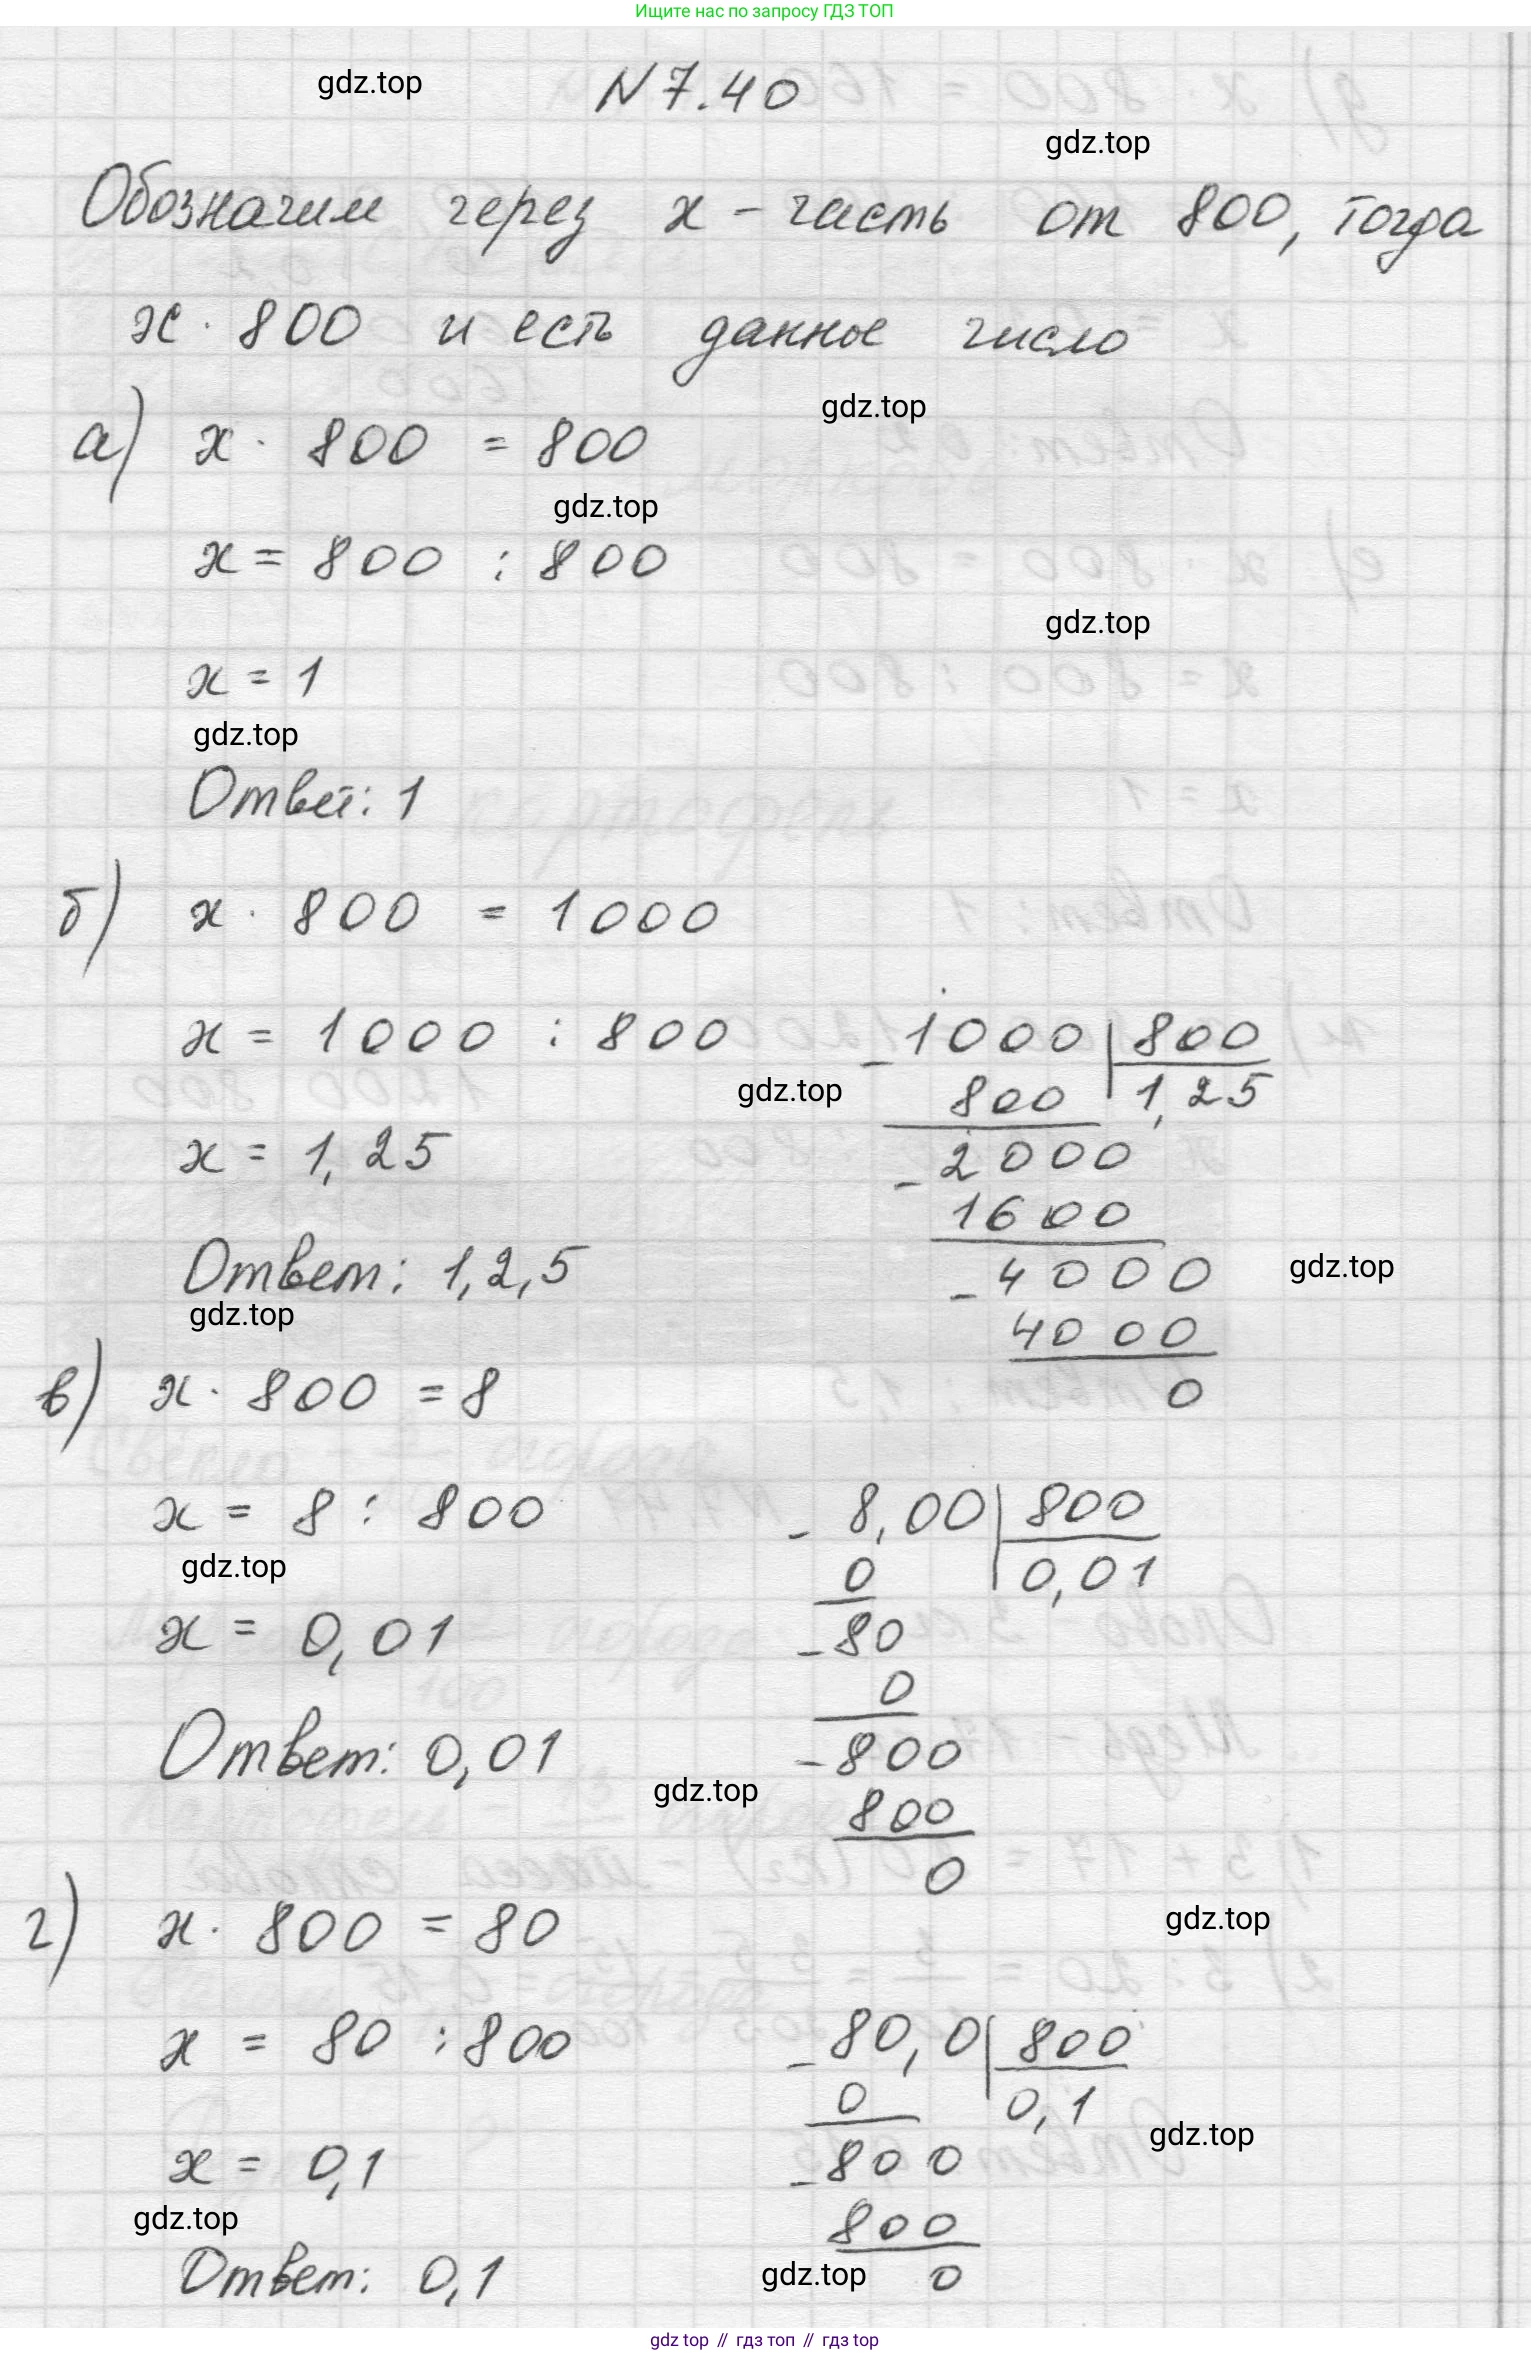 Ищите нас по запросу ГДЗ ТОП
gdz.top
N 7.40
gdz.top
Обозначим через x - часть от 800, тогда
x · 800 и есть данное число
gdz.top
а) x · 800 = 800
gdz.top
x = 800 : 800
gdz.top
x = 1
gdz.top
Ответ: 1
б) x · 800 = 1000
x = 1000 : 800
- 1000 | 800
gdz.top
800 | 1,25
x = 1,25
- 2000
1600
Ответ: 1,2,5
- 4000
gdz.top
gdz.top
4000
0
в) x · 800 = 8
x = 8 : 800
- 8,00 | 800
gdz.top
0 | 0,01
x = 0,01
- 80
0
Ответ: 0,01
- 800
gdz.top
800
0
г) x · 800 = 80
gdz.top
x = 80 : 800
- 80,0 | 800
0 | 0,1
gdz.top
x = 0,1
- 800
gdz.top
800
Ответ: 0,1
gdz.top
0
gdz top // гдз топ // гдз top